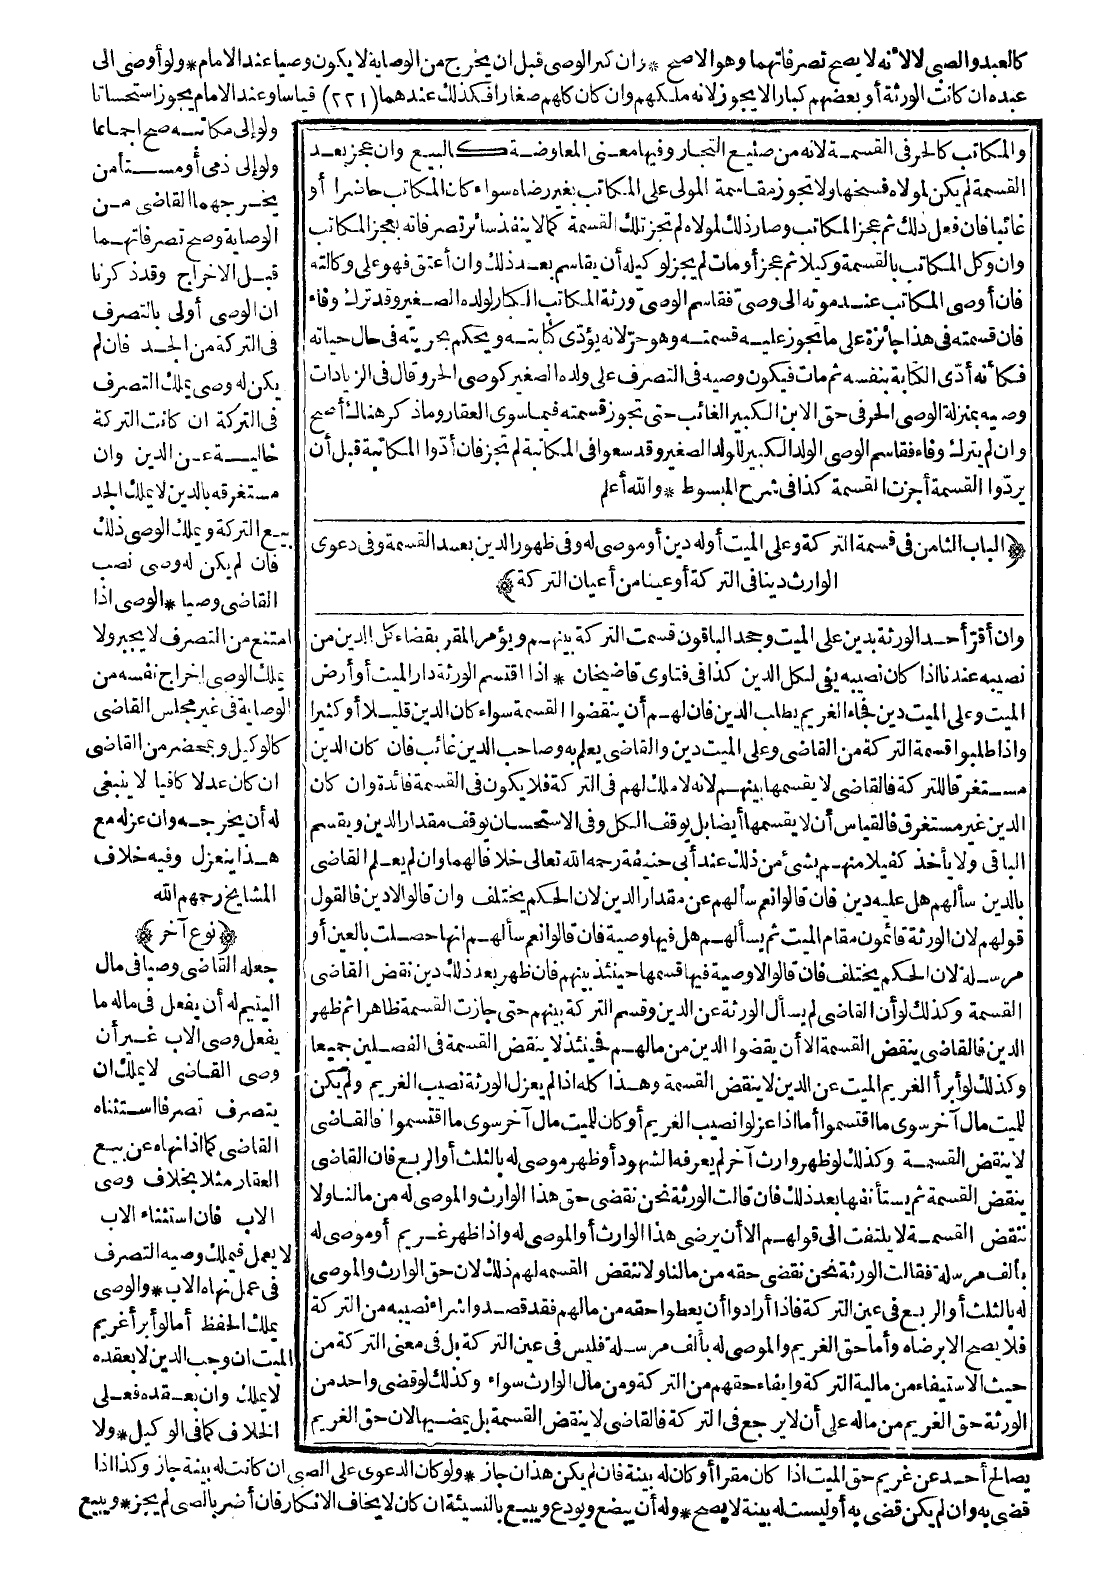 كالعبد والصبي لا لانه لا يصح تصرفاتهما وهو الاصح * وان كبر الوصى قبل ان يخرج من الوصاية لا يكون وصيا عند الامام * ولو أوصى الى
عبده ان كانت الورثة أو بعضهم كبار الا يجوز لانه ملكهم وان كان كلهم صغار افكذلك عندهما (٢٢١) قياسا وعند الامام يجوز استحسانا
والمكاتب كالحر فى القسمة لانه من صنيع التجار وفيها معنى المعاوضة كالبيع وان عجز بعد
القسمة لم يكن لمولاه فسخها ولا تجوز مقاسمة المولى على المكاتب بغير رضاه سواء كان المكاتب حاضرا أو
غائبا فان فعل ذلك ثم عجز المكاتب وصار ذلك لمولاه لم تجز تلك القسمة كما لا ينفذ سائر تصرفاته بعجز المكاتب
وان وكل المكاتب بالقسمة وكيلا ثم عجز أو مات لم يجز لوكيله أن يقاسم بعد ذلك وان أعتق فهو على وكالته
فان أوصى المكاتب عند موته الى وصىّ فقاسم الوصىّ ورثة المكاتب الكبار لولده الصغير وقد ترك وفاء
فان قسمته فى هذا جائزة على ما تجوز عليه قسمته وهو حرّ لانه يؤدّى كتابته ويحكم بحريته فى حال حياته
فكأنه أدّى الكتابة بنفسه ثم مات فيكون وصيه فى التصرف على ولده الصغير كوصى الحر وقال فى الزيادات
وصيه بمنزلة الوصى الحر فى حق الابن الكبير الغائب حتى تجوز قسمته فيما سوى العقار وما ذكر هنالك أصح
وان لم يترك وفاء فقاسم الوصى الولد الكبير للولد الصغير وقد سعوا فى المكاتبة لم تجز فان أدّوا المكاتبة قبل أن
يردّوا القسمة أجزت القسمة كذا فى شرح المبسوط * والله أعلم
﴿الباب الثامن فى قسمة التركة وعلى الميت أوله دين أو موصى له وفى ظهور الدين بعد القسمة وفى دعوى
الوارث دينا فى التركة أو عينا من أعيان التركة﴾
وان أقرّ أحد الورثة بدين على الميت وجحد الباقون قسمت التركة بينهم ويؤمر المقر بقضاء كل الدين من
نصيبه عندنا اذا كان نصيبه يفى لكل الدين كذا فى فتاوى قاضيخان * اذا اقتسم الورثة دار الميت أو أرض
الميت وعلى الميت دين فجاء الغريم يطلب الدين فان لهم أن ينقضوا القسمة سواء كان الدين قليلا أو كثيرا
واذا طلبوا قسمة التركة من القاضى وعلى الميت دين والقاضى يعلم به وصاحب الدين غائب فان كان الدين
مستغرقا للتركة فالقاضى لا يقسمها بينهم لانه لا ملك لهم فى التركة فلا يكون فى القسمة فائدة وان كان
الدين غير مستغرق فالقياس أن لا يقسمها أيضا بل يوقف الكل وفى الاستحسان يوقف مقدار الدين ويقسم
الباقى ولا يأخذ كفيلا منهم بشئ من ذلك عند أبى حنيفة رحمه الله تعالى خلافا لهما وان لم يعلم القاضى
بالدين سألهم هل عليه دين فان قالوا نعم سألهم عن مقدار الدين لان الحكم يختلف وان قالوا لا دين فالقول
قولهم لان الورثة قائمون مقام الميت ثم يسألهم هل فيها وصية فان قالوا نعم سألهم انها حصلت بالعين أو
مرسلة لان الحكم يختلف فان قالوا لا وصية فيها قسمها حينئذ بينهم فان ظهر بعد ذلك دين نقض القاضى
القسمة وكذلك لو أن القاضى لم يسأل الورثة عن الدين وقسم التركة بينهم حتى جازت القسمة ظاهرا ثم ظهر
الدين فالقاضى ينقض القسمة الا أن يقضوا الدين من مالهم فحينئذ لا ينقض القسمة فى الفصلين جميعا
وكذلك لو أبرأ الغريم الميت عن الدين لا ينقض القسمة وهذا كله اذا لم يعزل الورثة نصيب الغريم ولم يكن
للميت مال آخر سوى ما اقتسموا أما اذا عزلوا نصيب الغريم أو كان للميت مال آخر سوى ما اقتسموا فالقاضى
لا ينقض القسمة وكذلك لو ظهر وارث آخر لم يعرفه الشهود أو ظهر موصى له بالثلث أو الربع فان القاضى
ينقض القسمة ثم يستأنفها بعد ذلك فان قالت الورثة نحن نقضى حق هذا الوارث والموصى له من مالنا ولا
ننقض القسمة لا يلتفت الى قولهم الا أن يرضى هذا الوارث أو الموصى له واذا ظهر غريم أو موصى له
بألف مرسلة فقالت الورثة نحن نقضى حقه من مالنا ولا ننقض القسمة لهم ذلك لان حق الوارث والموصى
له بالثلث أو الربع فى عين التركة فاذا أرادوا أن يعطوا حقه من مالهم فقد قصدوا شراء نصيبه من التركة
فلا يصح الا برضاه وأما حق الغريم والموصى له بألف مرسلة فليس فى عين التركة بل فى معنى التركة من
حيث الاستيفاء من مالية التركة وايفاء حقهم من التركة ومن مال الوارث سواء وكذلك لو قضى واحد من
الورثة حق الغريم من ماله على أن لا يرجع فى التركة فالقاضى لا ينقض القسمة بل يمضيها لان حق الغريم
ولو إلى مكاتبه صح اجماعا
ولو إلى ذمى أو مستأمن
يخرجهما القاضى من
الوصاية وصح تصرفاتهما
قبل الاخراج وقد ذكرنا
ان الوصى أولى بالتصرف
فى التركة من الجد فان لم
يكن له وصى يملك التصرف
فى التركة ان كانت التركة
خالية عن الدين وان
مستغرقه بالدين لا يملك الجد
بيع التركة ويملك الوصى ذلك
فان لم يكن له وصى نصب
القاضى وصيا * الوصى اذا
امتنع من التصرف لا يجبر ولا
يملك الوصى اخراج نفسه من
الوصاية فى غير مجلس القاضى
كالوكيل وبمحضر من القاضى
ان كان عدلا كافيا لا ينبغى
له أن يخرجه وان عزله مع
هذا ينعزل وفيه خلاف
المشايخ رحمهم الله
﴿نوع آخر﴾
جعله القاضى وصيا فى مال
اليتيم له أن يفعل فى ماله ما
يفعل وصى الاب غير أن
وصى القاضى لا يملك ان
يتصرف تصرفا استثناه
القاضى كما اذا نهاه عن بيع
العقار مثلا بخلاف وصى
الاب فان استثناء الاب
لا يعمل فيملك وصيه التصرف
فى عمل نهاه الاب * والوصى
يملك الحفظ أما لو أبرأ غريم
الميت ان وجب الدين لا بعقده
لا يملك وان بعقده فعلى
الخلاف كما فى الوكيل * ولا
يصالح أحد عن غريم حق الميت اذا كان مقرا أو كان له بينة فان لم يكن هذان جاز * ولو كان الدعوى على الصبى ان كانت له بينة جاز وكذا اذا
قضى به وان لم يكن قضى به أو ليست له بينة لا يصح * وله أن يبضع ويودع ويبيع بالنسيئة ان كان لا يخاف الانكار فان أضر بالصبى لم يجز * ويبيع